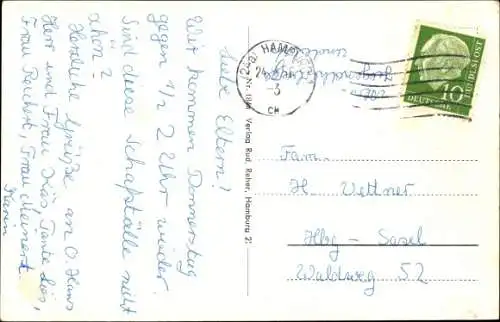 Liebe Eltern!
Wir kommen Donnerstag
gegen 1/2 2 Uhr wieder.
Sind diese Schafställe nicht
schön?
Herzliche Grüße an O. Hans
Herr und Frau Kids, Tante Lois,
Frau Reichert, Frau Meinert.
Karin
Verlag Rud. Reher, Hamburg
(24a) HAMBURG
24
-8
CH
DEUTSCHE
BUNDESPOST
10
Fam.
H. Vettner
Hbg - Sasel
Waldweg 52